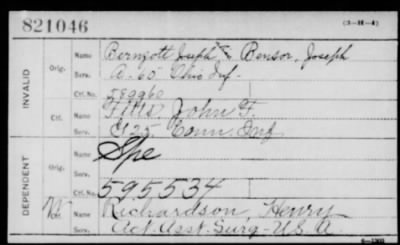 821046
(3-H-4)
INVALID
Orig.
Name Joseph Bensor, Joseph
Serv. A-60 Ohio Inf-
Ctf. No. 589960
Ctf.
Name John F.
Serv. G 25 Conn. Inf
DEPENDENT
Orig.
Name Spe
Serv.
Ctf. No. 595534
W Ctf.
Name Richardson, Henry
Serv. Act. Asst. Surg- U.S.A.